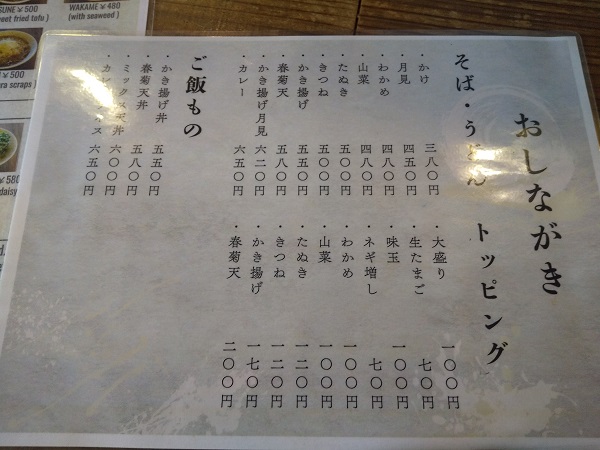 おしながき
そば・うどん
・かけ 三八〇円
・月見 四五〇円
・わかめ 四八〇円
・山菜 四八〇円
・たぬき 五〇〇円
・きつね 五〇〇円
・かき揚げ 五五〇円
・春菊天 五八〇円
・かき揚げ月見 六二〇円
・カレー 六五〇円
トッピング
・大盛り 一〇〇円
・生たまご 七〇円
・味玉 一〇〇円
・ネギ増し 七〇円
・わかめ 一〇〇円
・山菜 一〇〇円
・たぬき 一二〇円
・きつね 一二〇円
・かき揚げ 一七〇円
・春菊天 二〇〇円
ご飯もの
・かき揚げ丼 五五〇円
・春菊天丼 五八〇円
・ミックス天丼 六〇〇円
・カレーライス 六五〇円
¥500
fried tofu )
WAKAME ¥480
(with seaweed )
¥500
scraps )
¥580